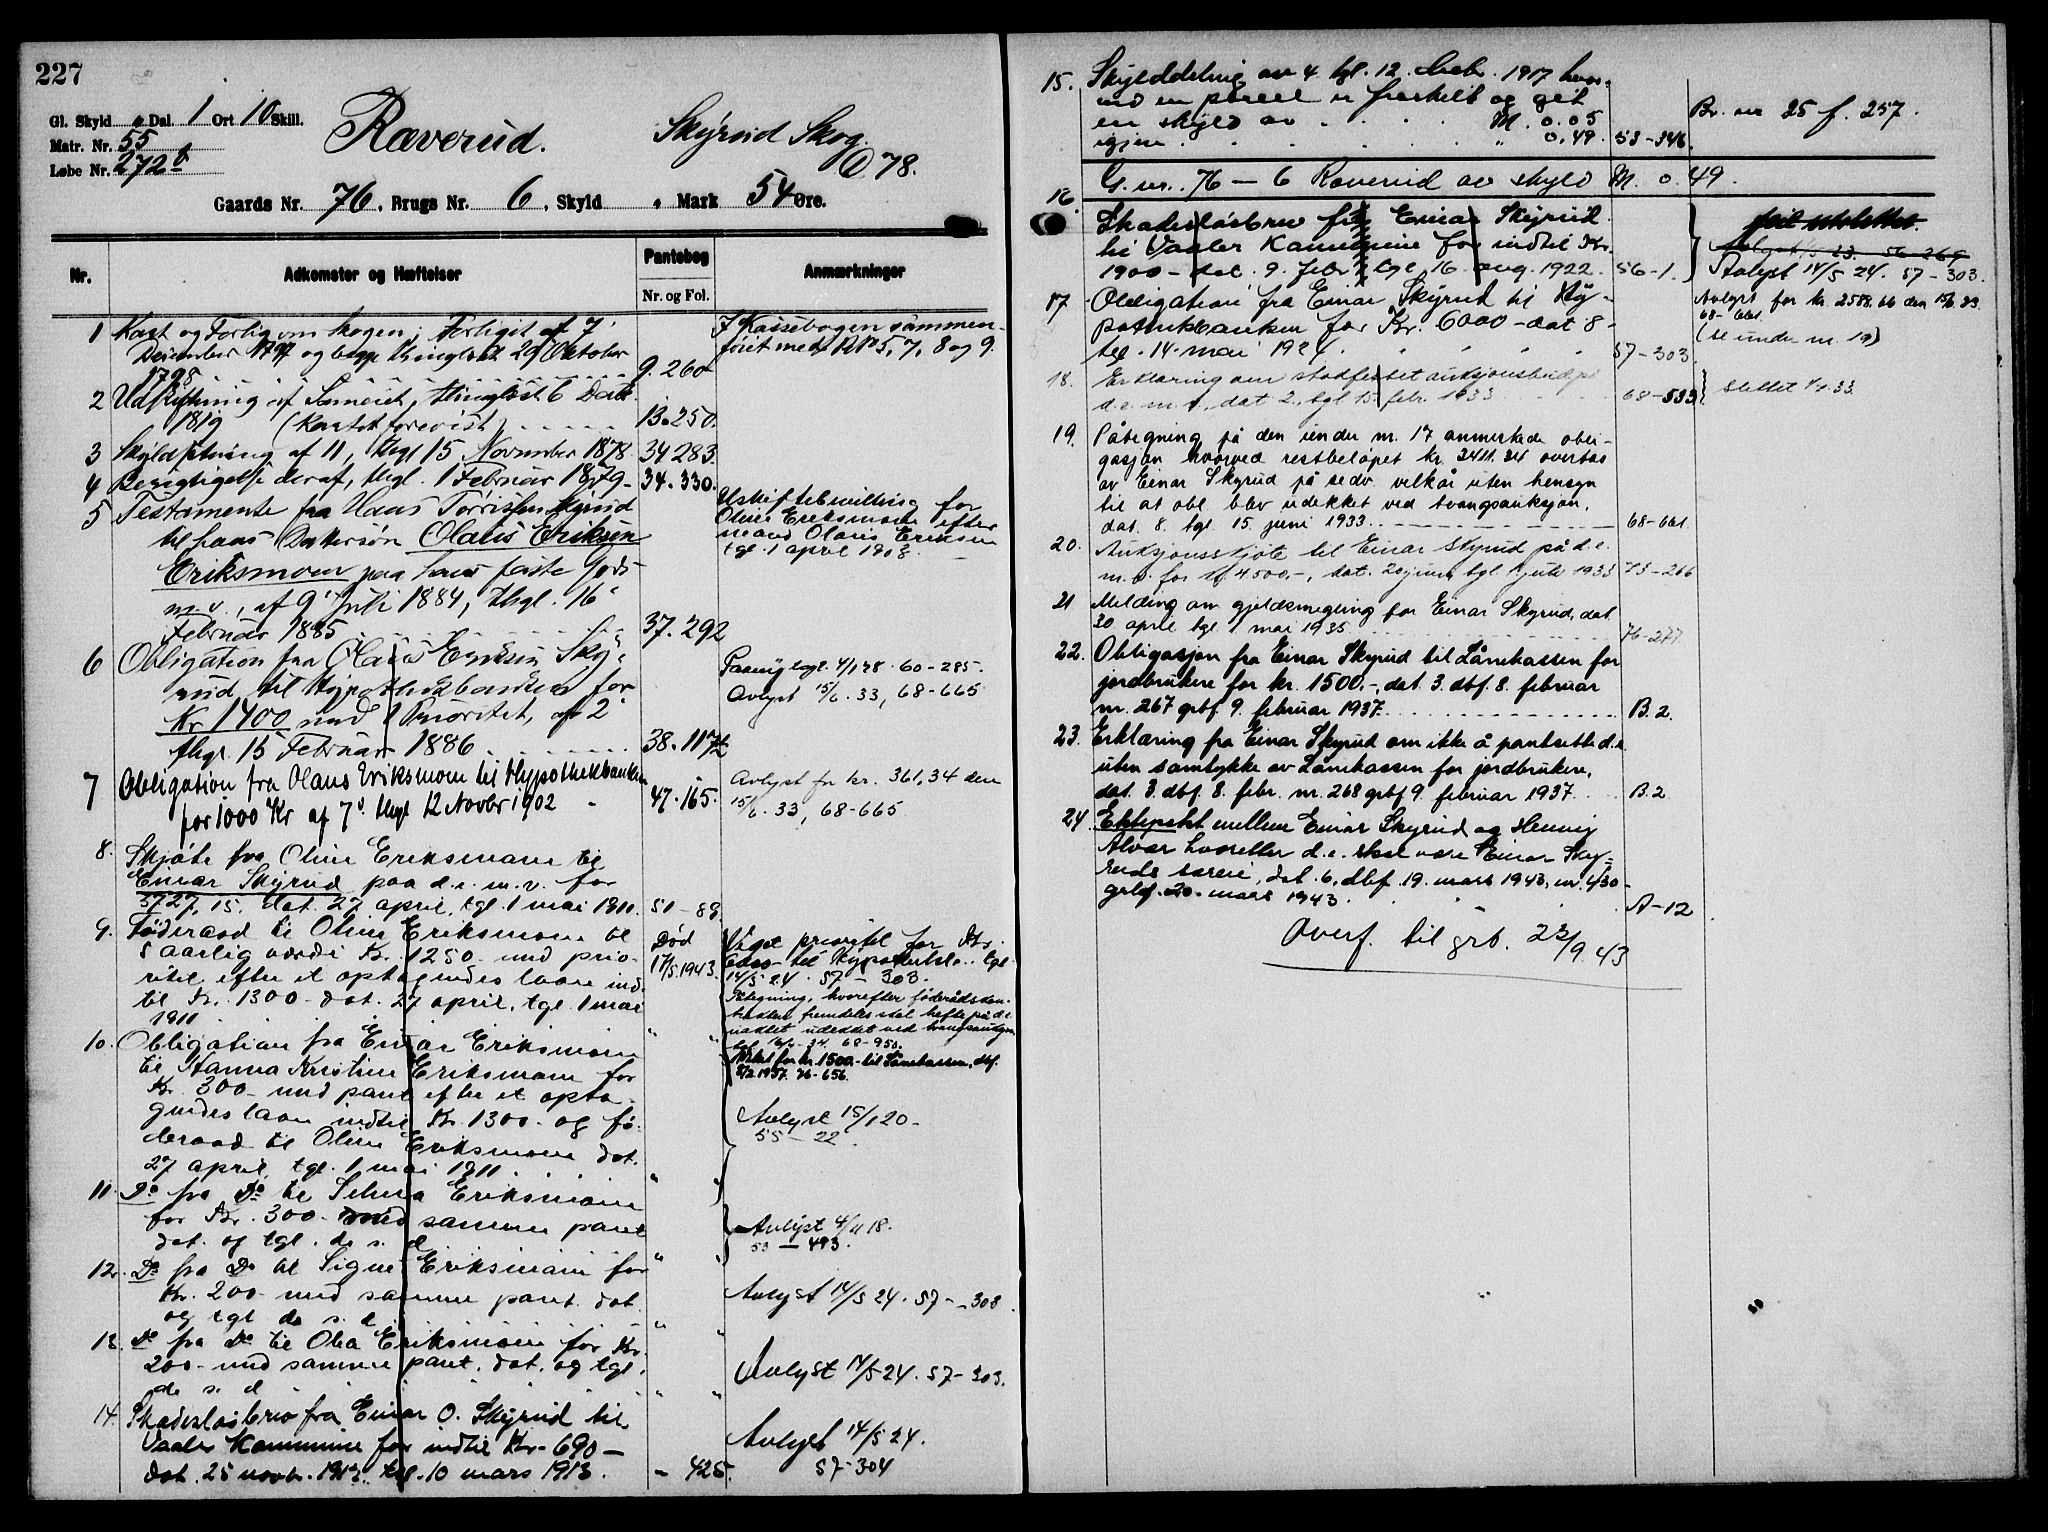 227
Gl. Skyld „ Dal. 1 Ort 10 Skill.
Matr. Nr. 55
Løbe Nr. 272 b
Ræverud.
Skyrud Skog
78.
Gaards Nr. 76, Brugs Nr. 6, Skyld „ Mark 54 Øre.
Nr.
Adkomster og Hæftelser
Pantebog
Nr. og Fol.
Anmærkninger
1 Kart og Forlig om Skogen; Forligst af 7'
December 1797 og begge thinglæst 29 Oktober
1798 9. 260
I Kassebogen sammen-
føiet med 5, 7, 8 og 9.
2 Udskiftning af Sameiet, thinglæst 6
1819 (Kartet forevist) 13. 250.
3 Skyldsetning af 11, thgl 15 November 1878 34 283.
4 Berigtigelse deraf, thgl. 1 Februar 1879 34. 330.
5 Testamente fra Hans Tørrissen Skyrud
til hans Dattersøn Olaus Eriksen
Eriksmoen paa hans faste Gods
m. v., af 9' Juli 1884, thgl. 16'
Februar 1885 37. 292
Uskiftebevilling for
Oline Eriksmoen efter
mand Olaus Eriksen
tgl. 1 april 1908.
6 Obligation fra Olaus Eriksen Sky-
rud til Hypothekbanken for
Kr 1400 med 1 Prioritet, af 2'
thgl. 15 Februar 1886 38. 117
60-285.
Avlyst 15/6. 33, 68-665
7 Obligation fra Olaus Eriksmoen til Hypothekbanken
for 1000 Kr af 7' thgl 12 Novbr 1902 47. 165.
Avlyst for kr. 361,34 den
15/6. 33, 68-665
8. Skjøte fra Oline Eriksmoen til
Einar Skyrud paa d. e. m. v. for
3727,15. dat. 27 april, tgl. 1 mai 1911. 51-89
9. Føderaad til Oline Eriksmoen til
5 aarlig værdi Kr. 1250 med prio-
ritet efter et optagendes laan ind-
til Kr. 1300 dat. 27 april, tgl. 1 mai
1911
Død
17/5 1943.
Veget prioritet for Kr.
6000 til Hypothekb. tgl.
14/5 24. 57-303.
Påtegning, hvorefter føderådskon-
trakten fremdeles skal hefte på d. e.
uaktet udekket ved tvangsauksjon
34. 68-950.
Veket for kr. 1500.- til Lånekassen, dbf.
8/2 1937. 76-656.
10. Obligation fra Einar Eriksmoen " "
til Hanna Kristine Eriksmoen for
Kr. 300 med pant efter et opta-
gendes laan indtil Kr. 1300 og fø-
deraad til Oline Eriksmoen dat.
27 april, tgl. 1 mai 1911 " "
Avlyst 15/1 20
55-22.
11. Do fra Do til Selma Eriksmoen
for Kr. 300 med samme pant
dat. og tgl. de s. d " "
Avlyst 4/11 18.
53-493.
12. Do fra Do til Signe Eriksmoen for
Kr. 200 med samme pant dat.
og tgl de s. d " "
Avlyst 14/5 24. 57-303.
13. Do fra Do til Olea Eriksmoen for Kr.
200 med samme pant, dat. og tgl.
de s. d " "
Avlyst 14/5 24. 57-303.
14. Skadesløsbrev fra Einar O. Skyrud til
Vaaler Kommune for indtil Kr. 690
dat. 25 novbr. 1912, tgl. 10 mars 1913. " 425.
Avlyst 14/5 24.
57-304
15. Skylddeling av 4 tgl. 12. 1917 hvor-
ved en parcel er fraskilt og git
en skyld av M. 0.05
igjen " 0.49. 53-346.
Br. nr 25 f. 257.
G. nr. 76-6 Ræverud av skyld M. 0.49.
16. Skadesløsbrev fra Einar Skyrud
til Vaaler Kommune for indtil Kr.
1900 dat. 9. febr. tgl. 16 aug. 1922. 56-1.
23. 56-269
Avlyst 14/5 24. 57-303.
17 Obligation fra Einar Skyrud til Hy-
pothekbanken for Kr. 6000 dat 8
tgl. 14. mai 1924. 57-303.
Avlyst for kr. 2588.66 den 15/6 33
68-661
(se under nr. 19)
18. Erklæring om stadfestet auksjonsbud på
d. e. m. v., dat 2., tgl 15 febr. 1933 68-533
Slettet 33
19. Påtegning på den under nr. 17 anmerkede obli-
gasjon hvorved restbeløpet kr. 3411.34 overtas
av Einar Skyrud på sedv. vilkår uten hensyn
til at obl. blev udekket ved tvangsauksjon,
dat. 8. tgl. 15. juni 1933. 68-661.
20. Auksjonsskjøte til Einar Skyrud på d. e.
m. v. for kr 4500,-, dat. 20 juni, tgl. juli 1933 73-266
21 Melding om gjeldsmegling for Einar Skyrud, dat
30 april tgl. 1 mai 1935 76-277
22. Obligasjon fra Einar Skyrud til Lånekassen for
jordbrukere for kr. 1500.-, dat. 3. dbf. 8. februar
nr. 267 grbf. 9. februar 1937. B. 2.
23. Erklæring fra Einar Skyrud om ikke å pantsette d. e.
uten samtykke av Lånekassen for jordbrukere,
dat. 3. dbf. 8. febr. nr. 268 grbf. 9. februar 1937. B. 2
24. Ektepakt mellem Einar Skyrud og Henny
Alvær hvoretter d. e. skal være Einar Sky-
ruds særeie, dat. 6. dbf. 19. mars 1943, nr. 430
grbf. 20. mars 1943. A-12
Overf. til grb. 23/9 43